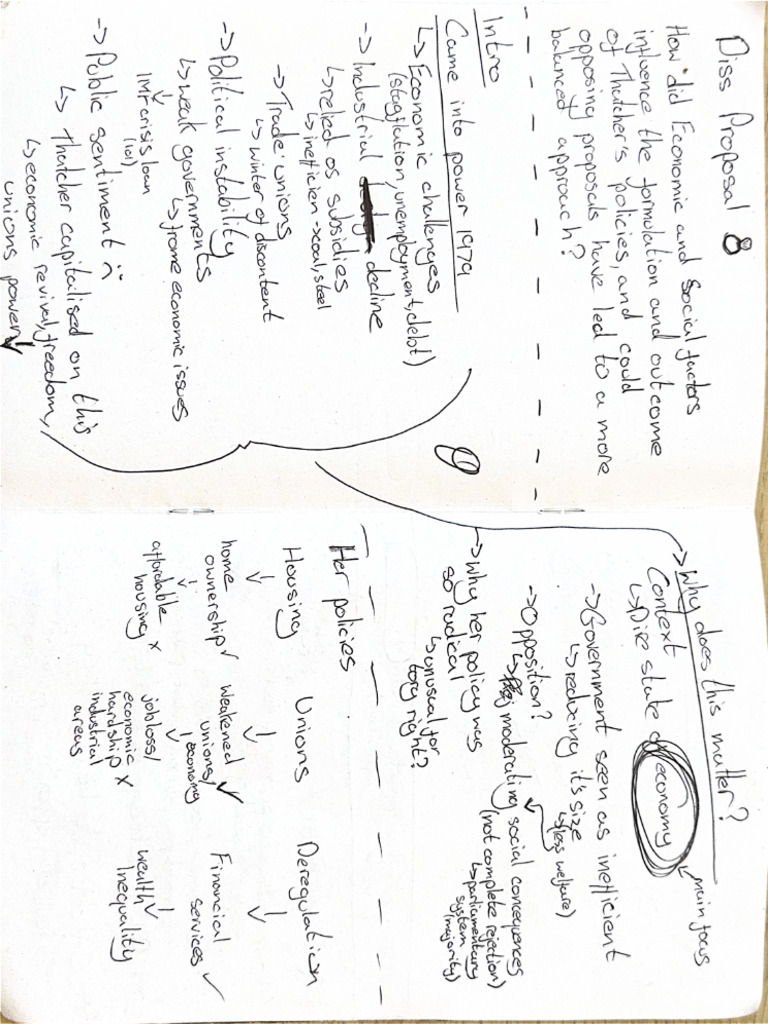 Diss Proposal 8
How did Economic and Social factors
influence the formulation and outcome
of Thatcher's policies, and could
opposing proposals have led to a more
balanced approach?
Intro
Came into power 1979
↳ Economic challenges
(stagflation, unemployment, debt)
-> Industrial decline
↳ relied os subsidies
↳ inefficien -> coal, steel
-> Trade unions
↳ winter of discontent
-> Political instability
↳ weak governments
↳ frome economic issues
IMF crisis loan
(lol)
-> Public sentiment :(
↳ Thatcher capitalised on this
↳ economic revival, freedom,
unions power ↓
-> Why does this matter?
Context
↳ Dire state of economy
main focus
-> Government seen as inefficient
↳ reducing it's size
↳ (less welfare)
-> Opposition?
↳ moderating social consequences
(not complete rejection)
↳ parliamentary
system
(majority)
-> Why her policy was
so radical
↳ unusual for
tory right?
Her policies
Housing
↓
home
ownership ✓
↓
affordable
housing x
Unions
↓
Weakened
unions, ✓
↓ economy
job loss/
economic
hardship x
industrial
areas
Deregulation
↓
Financial
services ✓
↓
wealth
inequality